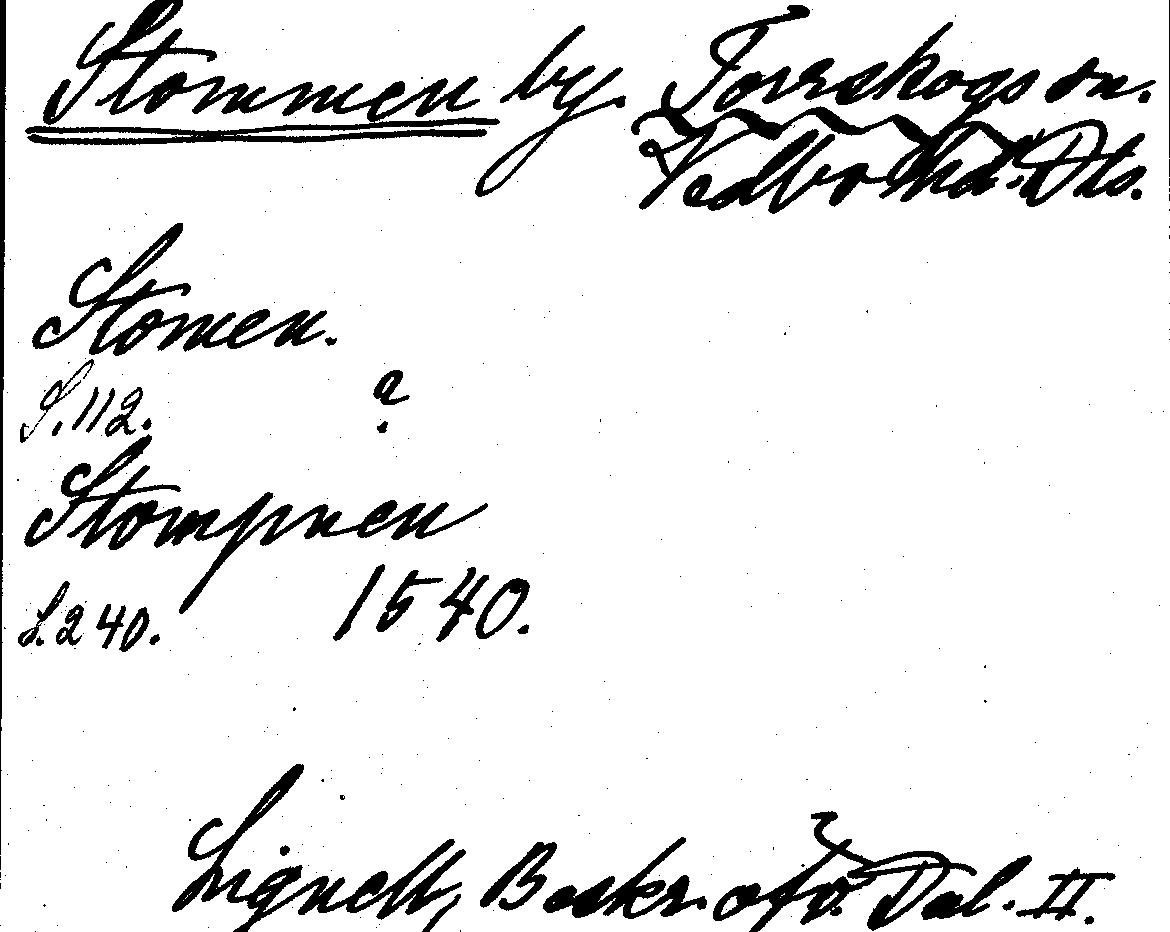 Stommen by. Torrskogs sn.
Vedbo hd. Dls.
Stomen.
S. 112. ?
Stompnen
S. 240. 1540.
Lignell, Beskr. öfv. Dal. II.